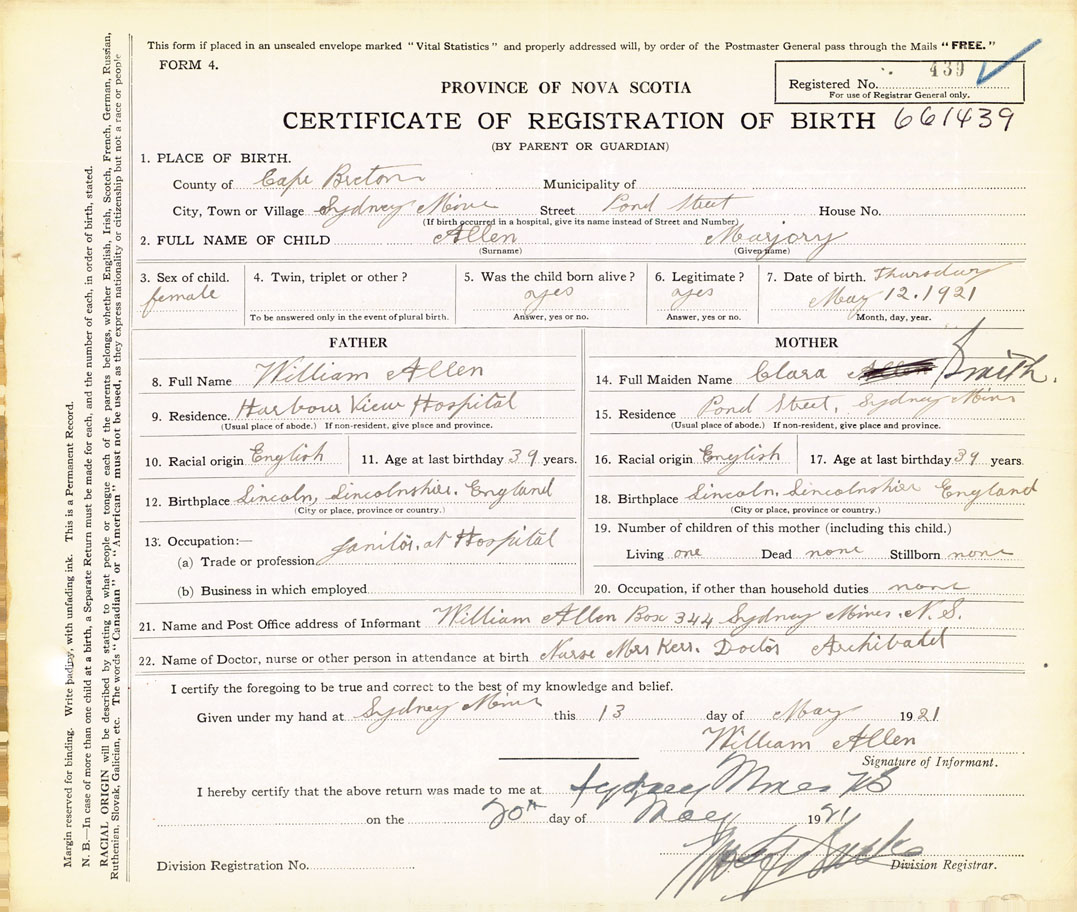 This form if placed in an unsealed envelope marked "Vital Statistics" and properly addressed will, by order of the Postmaster General pass through the Mails "FREE."
FORM 4.
Registered No. 439
For use of Registrar General only.
PROVINCE OF NOVA SCOTIA
CERTIFICATE OF REGISTRATION OF BIRTH 661439
(BY PARENT OR GUARDIAN)
1. PLACE OF BIRTH.
County of Cape Breton Municipality of
City, Town or Village Sydney Mines Street Pond Street House No.
(If birth occurred in a hospital, give its name instead of Street and Number)
2. FULL NAME OF CHILD Allen Marjory
(Surname) (Given name)
3. Sex of child. female
4. Twin, triplet or other?
To be answered only in the event of plural birth.
5. Was the child born alive? yes
Answer, yes or no.
6. Legitimate? yes
Answer, yes or no.
7. Date of birth. Thursday
May 12. 1921
Month, day, year.
FATHER
8. Full Name William Allen
9. Residence. Harbour View Hospital
(Usual place of abode.) If non-resident, give place and province.
10. Racial origin English 11. Age at last birthday 39 years.
12. Birthplace Lincoln, Lincolnshire. England
(City or place, province or country.)
13. Occupation:—
(a) Trade or profession Janitor. at Hospital
(b) Business in which employed
MOTHER
14. Full Maiden Name Clara Allen Smith.
15. Residence Pond Street, Sydney Mines
(Usual place of abode.) If non-resident, give place and province.
16. Racial origin English 17. Age at last birthday 39 years.
18. Birthplace Lincoln. Lincolnshire England
(City or place, province or country.)
19. Number of children of this mother (including this child.)
Living one Dead none Stillborn none
20. Occupation, if other than household duties none
21. Name and Post Office address of Informant William Allen Box 344 Sydney Mines. N. S.
22. Name of Doctor, nurse or other person in attendance at birth Nurse Mrs Kerr. Doctor Archibald
I certify the foregoing to be true and correct to the best of my knowledge and belief.
Given under my hand at Sydney Mines this 13 day of May 1921
William Allen
Signature of Informant.
I hereby certify that the above return was made to me at Sydney Mines NS
on the 20th day of May 1921
Division Registration No. Division Registrar.
Margin reserved for binding. Write plainly, with unfading ink. This is a Permanent Record.
N. B.—In case of more than one child at a birth, a Separate Return must be made for each, and the number of each, in order of birth, stated.
RACIAL ORIGIN will be described by stating to what people or tongue each of the parents belongs, whether English, Irish, Scotch, French, German, Russian,
Ruthenian, Slovak, Galician, etc. The words "Canadian" or "American" must not be used, as they express nationality or citizenship but not a race or people